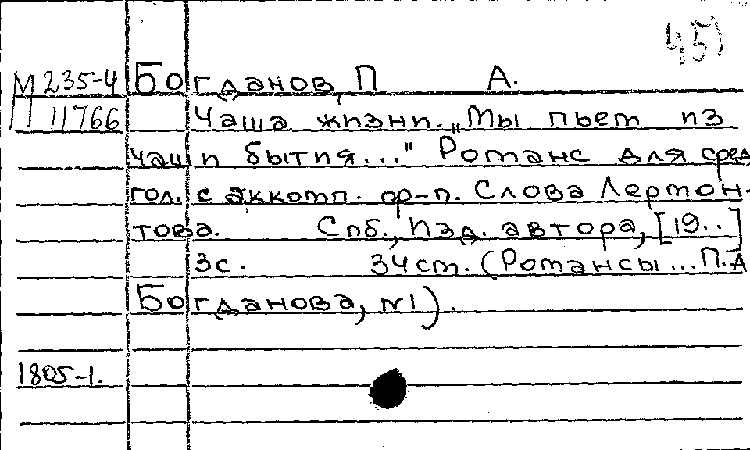 45)
М 235-4 Богданов, П А.
П 11766 Чаша жизни. „Мы пьем из
чаши бытия..." Романс для сред.
гол. с аккомп. ф-п. Слова Лермон-
това. Спб., Изд. автора, [19..]
3с. 34см. (Романсы...П.А
Богданова, №1).
1805-1.